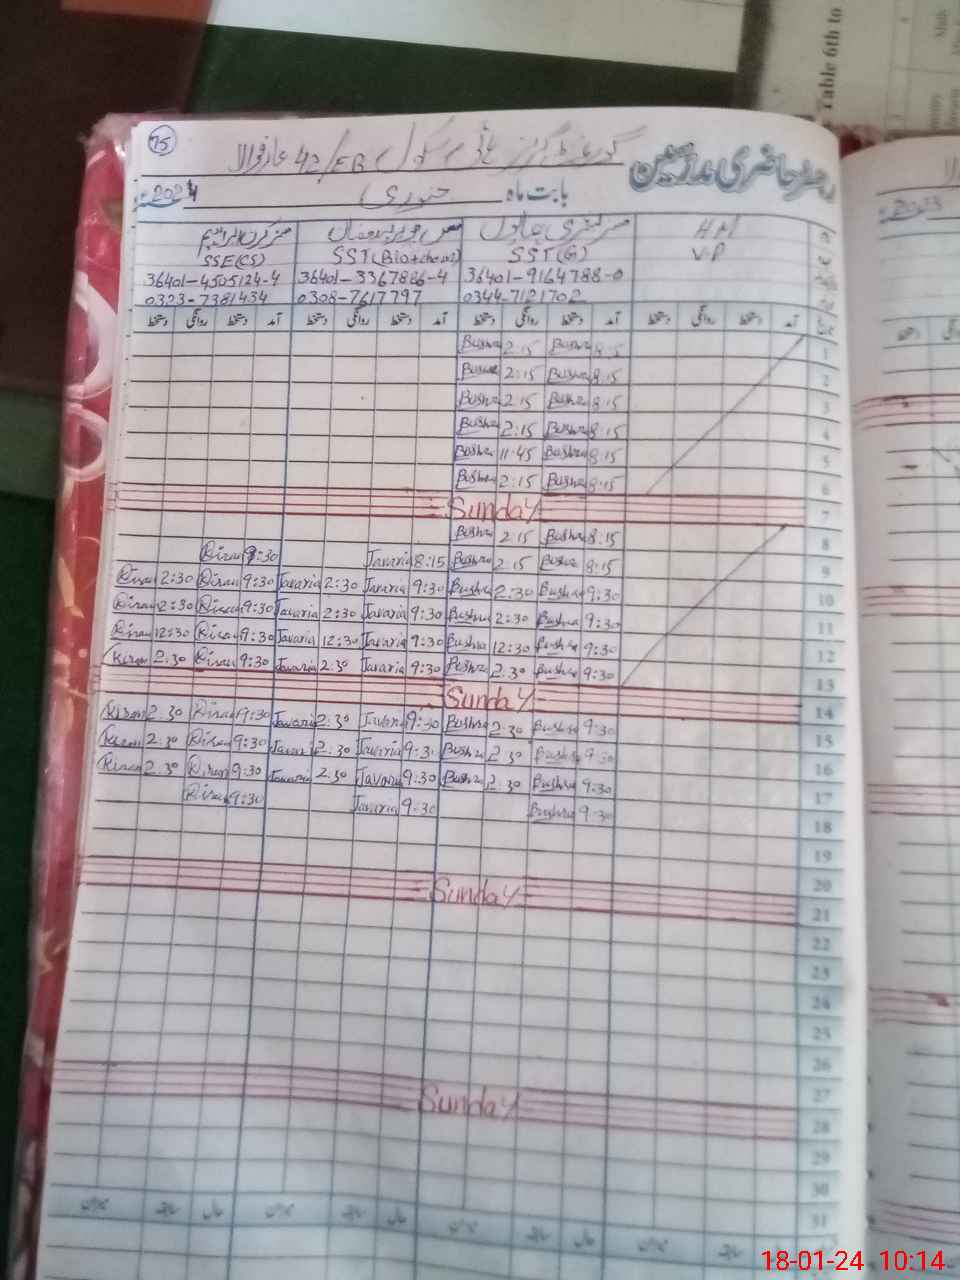 Table 6th to
75
گورنمنٹ گرلز ہائی سکول 42/EB عارفوالا
رجسٹر حاضری مدرسین
2024 بابت ماہ جنوری
H.M
SSE(CS) SST(Bio+chem) SST(G) V-P
36401-4505124-4 36401-3367886-4 36401-9164788-0
0323-7381434 0308-7617797 0344-7121702
دستخط روانگی دستخط آمد دستخط روانگی دستخط آمد دستخط روانگی دستخط آمد دستخط روانگی دستخط آمد
Bushra 2:15 Bushra 8:15 1
Bushra 2:15 Bushra 8:15 2
Bushra 2:15 Bushra 8:15 3
Bushra 2:15 Bushra 8:15 4
Bushra 11:45 Bushra 8:15 5
Bushra 2:15 Bushra 8:15 6
Sunday 7
Bushra 2:15 Bushra 8:15 8
Kiran 9:30 Javaria 8:15 Bushra 2:15 Bushra 8:15 9
Kiran 2:30 Kiran 9:30 Javaria 2:30 Javaria 9:30 Bushra 2:30 Bushra 9:30 10
Kiran 2:30 Kiran 9:30 Javaria 2:30 Javaria 9:30 Bushra 2:30 Bushra 9:30 11
Kiran 12:30 Kiran 9:30 Javaria 12:30 Javaria 9:30 Bushra 12:30 Bushra 9:30 12
Kiran 2:30 Kiran 9:30 Javaria 2:30 Javaria 9:30 Bushra 2:30 Bushra 9:30 13
Sunday 14
Kiran 2:30 Kiran 9:30 Javaria 2:30 Javaria 9:30 Bushra 2:30 Bushra 9:30 15
Kiran 2:30 Kiran 9:30 Javaria 2:30 Javaria 9:30 Bushra 2:30 Bushra 9:30 16
Kiran 2:30 Kiran 9:30 Javaria 2:30 Javaria 9:30 Bushra 2:30 Bushra 9:30 17
Kiran 9:30 Javaria 9:30 Bushra 9:30 18
19
20
Sunday 21
22
23
24
25
26
27
Sunday 28
29
30
31
18-01-24 10:14